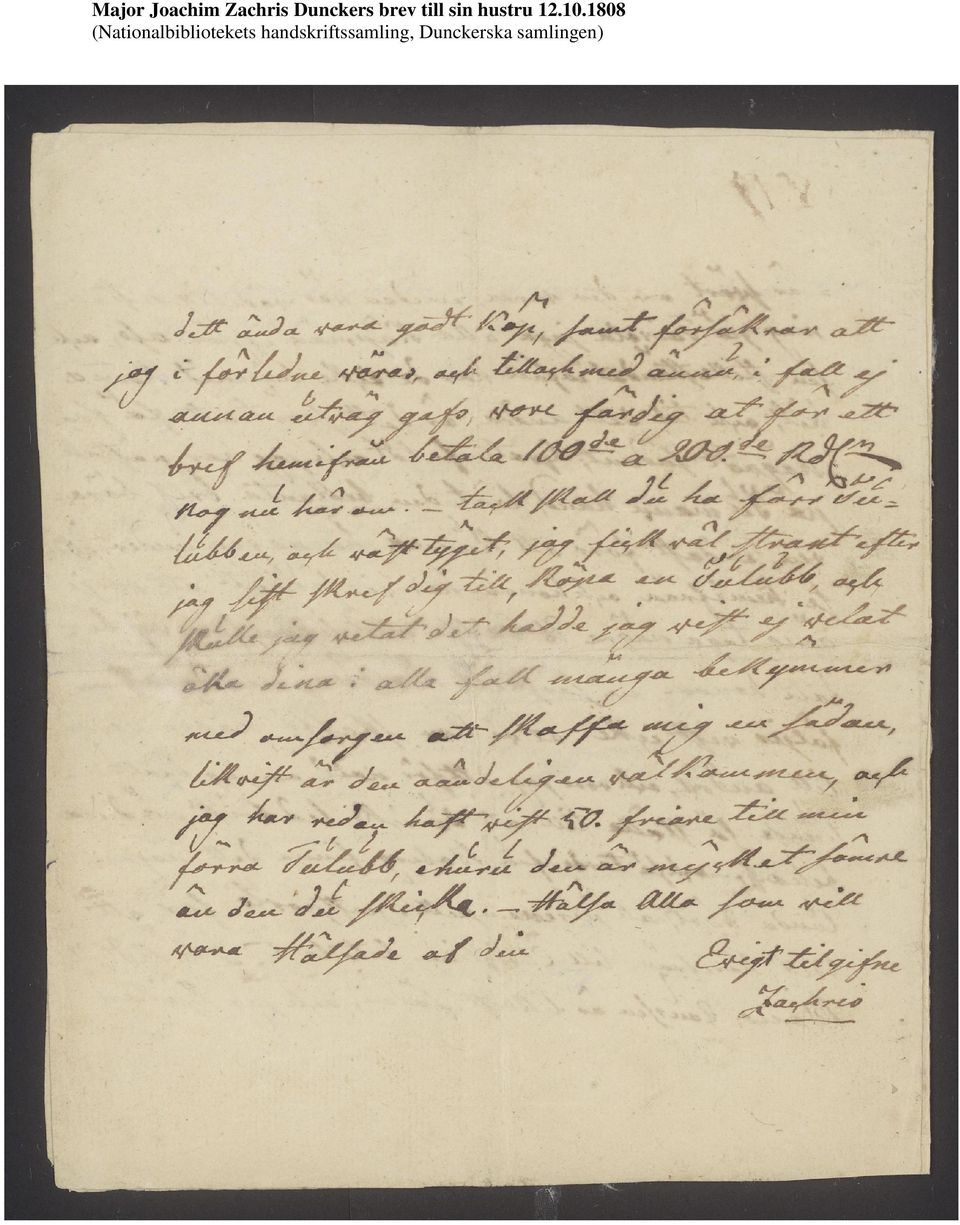 Major Joachim Zachris Dunckers brev till sin hustru 12.10.1808
(Nationalbibliotekets handskriftssamling, Dunckerska samlingen)
dett ända vara godt Köp, samt försäkrar att
jag i förledne wåras, och tilloch med ännú, i fall ej
annan útväg gafs, wore färdig at för ett
bref hemifrån betala 100de a 200.de Rdlr
nog nú här om. – tack skall dú ha förr Tú=
lúbben, och wäst tyget, jag fick wäl straxt efter
jag sist skref dig till, Köpa en Túlúbb, och
skúlle jag vetat det hadde jag wist ej velat
öka dina i alla fall många bekymmer
med omsorgen att skaffa mig en sådan,
likwist är den oändeligen wälkommen, och
jag har redan haft wist 50. friare till min
förra Túlúbb, ehúrú den är mycket sämre
än den dú skicka. – Hälsa Alla som will
vara Hälsade af din
Ewigt tilgifne
Zachris